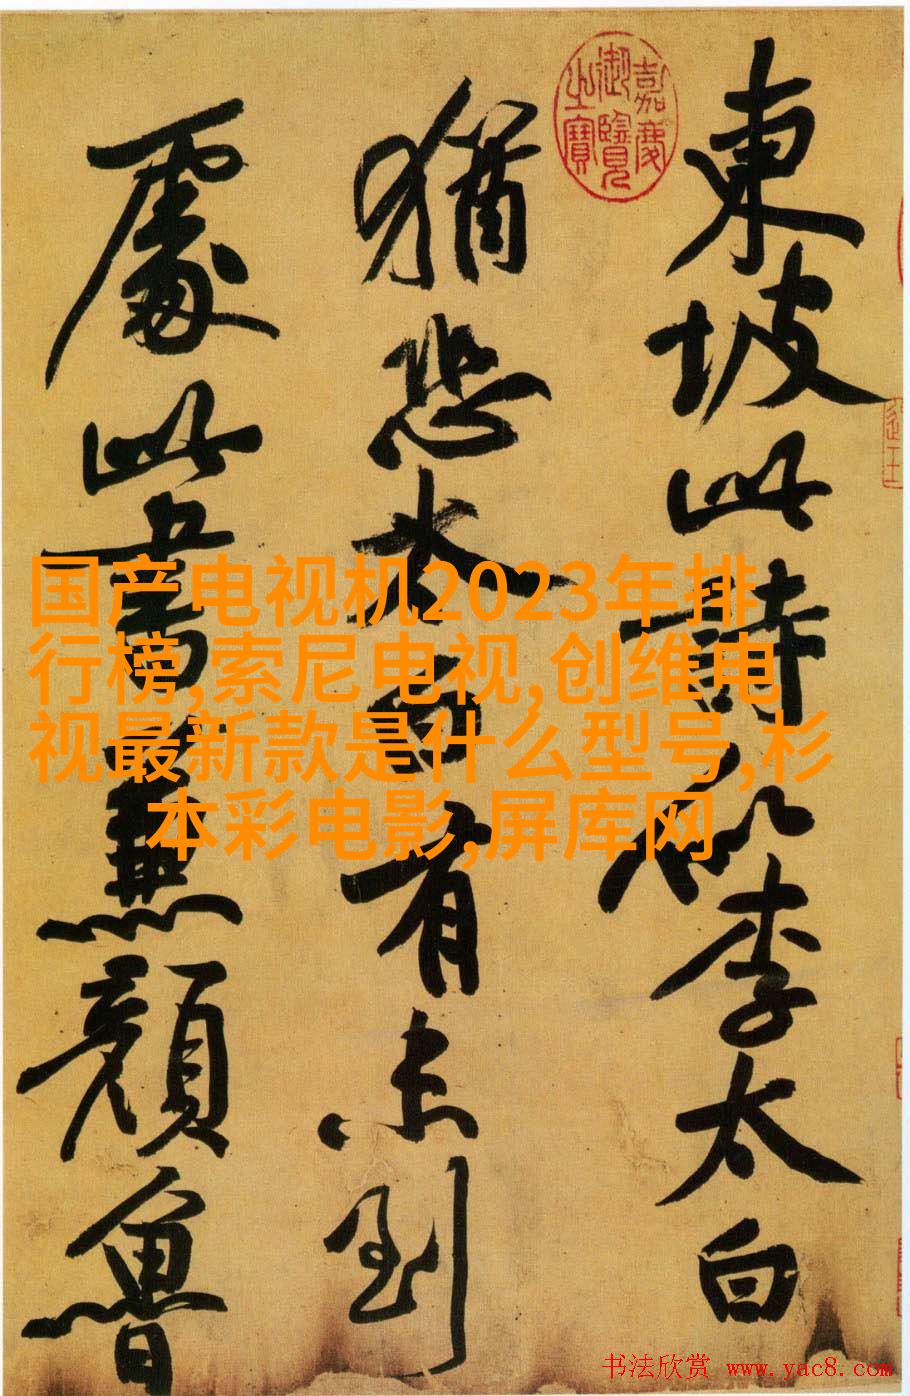 東坡此詩似李太白
嘉慶
御覽
之寶
猶恐太白有未到
處此書兼顏魯
国产电视机2023年排
行榜,索尼电视,创维电
视最新款是什么型号,杉
本彩电影,屏库网
书法欣赏 www.yac8.com